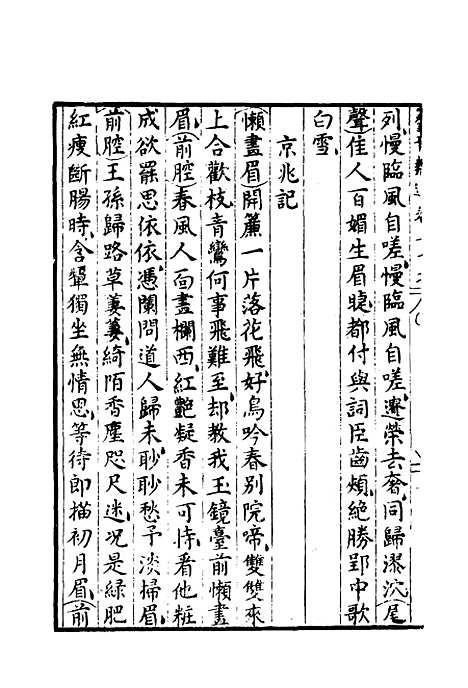 列慢臨風自嗟慢臨風自嗟遷榮去奢同歸漻泬(尾
聲)佳人百媚生眉睫都付與詞臣齒頰絶勝郢中歌
白雪
京兆記
(懶畫眉)開簾一片落花飛好鳥吟春別院啼雙雙來
上合歡枝青鸞何事飛難至却教我玉鏡臺前懶畫
眉(前腔)春風人面畫欄西紅艷凝香未可恃看他粧
成欲罷思依依憑闌問道人歸未聊聊愁予淡掃眉
(前腔)王孫歸路草萋萋綺陌香塵咫尺迷況是緑肥
紅瘦斷腸時含顰獨坐無情思等待郎描初月眉(前